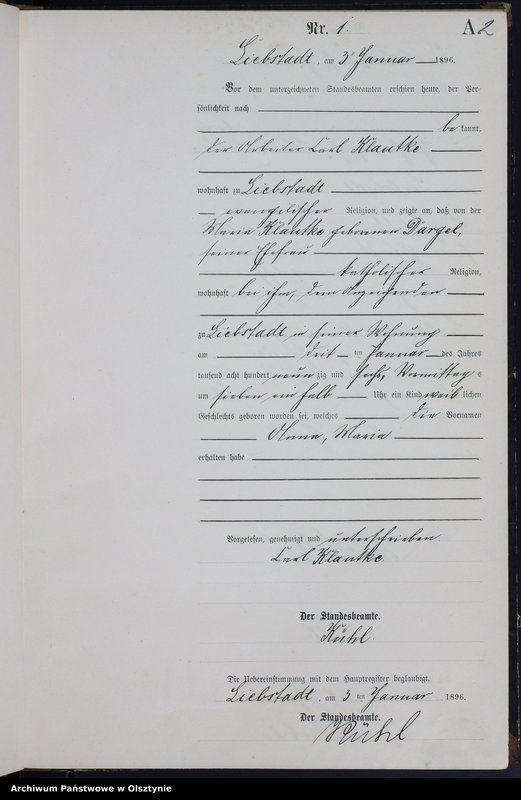 Nr. 1. A 2
Liebstadt, am 3ten Januar 1896.
Vor dem unterzeichneten Standesbeamten erschien heute, der Per-
sönlichkeit nach
be kannt,
der Arbeiter Carl Klautke
wohnhaft zu Liebstadt
evangelischer Religion, und zeigte an, daß von der
Maria Klautke geborenen Dargel,
seiner Ehefrau
katholischer Religion,
wohnhaft bei ihm, dem Anzeigenden
zu Liebstadt in seiner Wohnung
am drit ten Januar des Jahres
tausend acht hundert neun zig und sechs, Vormittag s
um sieben ein halb Uhr ein Kind weib lichen
Geschlechts geboren worden sei, welches die Vornamen
Anna, Maria
erhalten habe
Vorgelesen, genehmigt und unterschrieben.
Carl Klautke.
Der Standesbeamte.
Kühl.
Die Uebereinstimmung mit dem Hauptregister beglaubigt.
Liebstadt, am 3 ten Januar 1896.
Der Standesbeamte.
Kühl
Archiwum Państwowe w Olsztynie